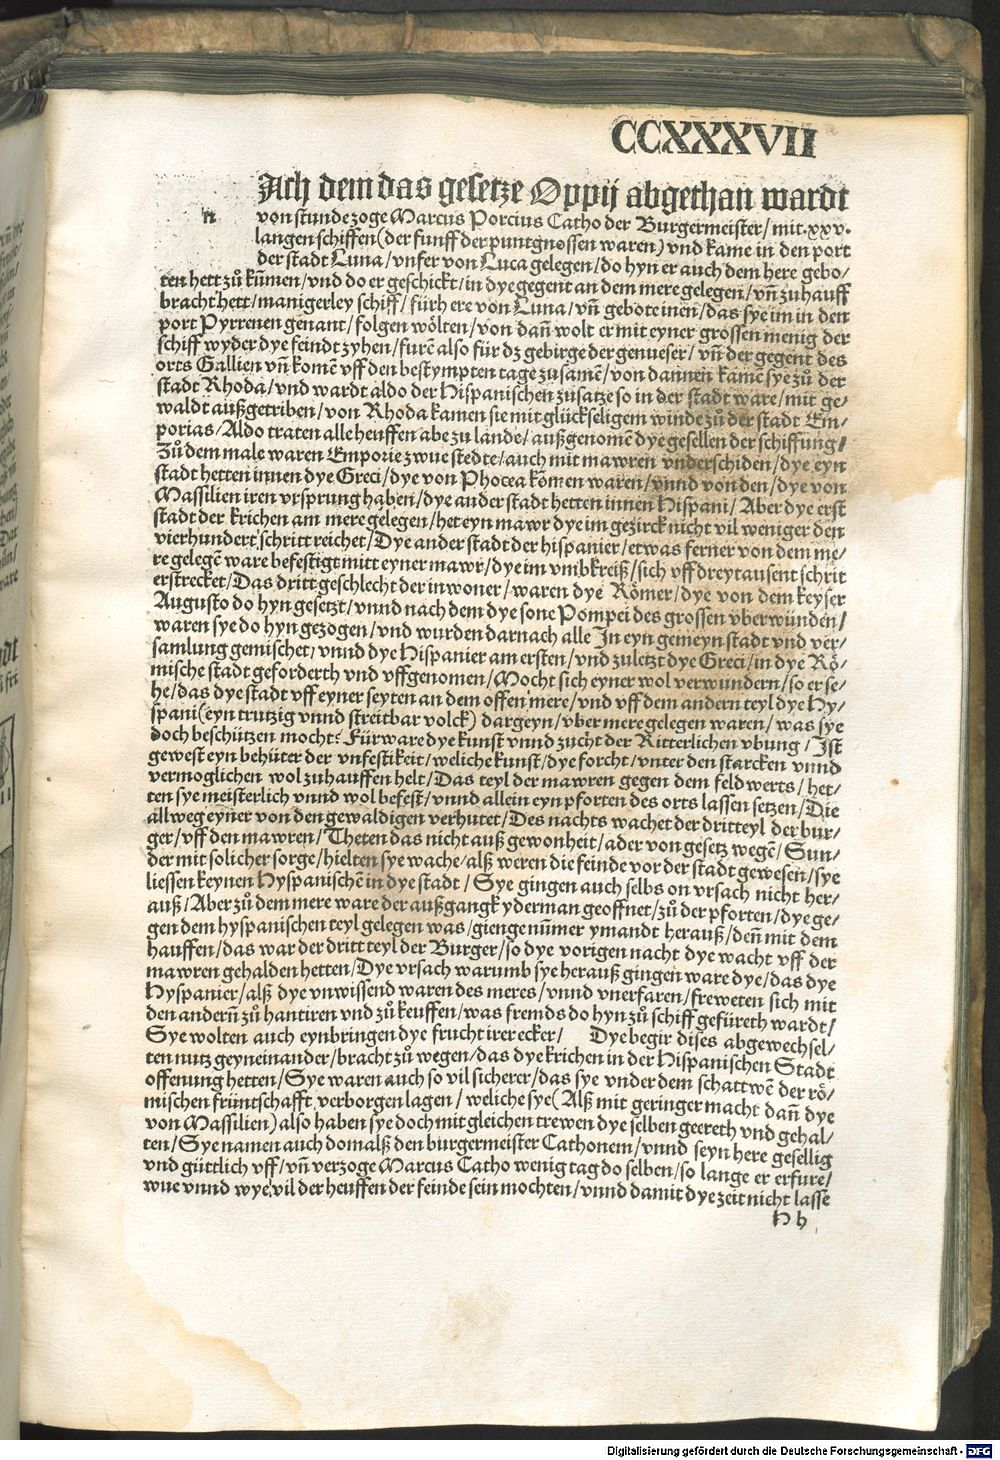 CCXXXVII
n Ach dem das gesetze Oppij abgethan wardt
von stunde zoge Marcus Porcius Catho der Burgermeister/ mit .xxv.
langen schiffen (der funff der puntgnossen waren) vnd kame in den port
der stadt Luna/ vnfer von Luca gelegen/ do hyn er auch dem here gebo/
ten hett zů kům̄en/ vnd do er geschickt/ in dye gegent an dem mere gelegen/ vn̄ zuhauff
bracht hett/ manigerley schiff/ fürh ere von Luna/ vn̄ gebote inen/ das sye im in den
port Pyrrenen genant/ folgen wölten/ von dan̄ wolt er mit eyner grossen menig der
schiff wyder dye feindt zyhen/ furē also für dz gebirge der genueser/ vn̄ der gegent des
orts Gallien vn̄ komē vff den bestympten tage zusamē/ von dannen kamē sye zů der
stadt Rhoda/ vnd wardt aldo der Hispanischen zusatze so in der stadt ware/ mit ge/
waldt außgetriben/ von Rhoda kamen sie mit glückseligem winde zů der stadt Em/
porias/ Aldo traten alle heuffen abe zu lande/ außgenomē dye gesellen der schiffung/
Zů dem male waren Emporie zwue stedte/ auch mit mawren vnderschiden/ dye eyn
stadt hetten innen dye Greci/ dye von Phocea kōmen waren/ vnnd von den/ dye von
Massilien iren vrsprung haben/ dye ander stadt hetten innen Hispani/ Aber dye erst
stadt der krichen am mere gelegen/ het eyn mawr dye im gezirck nicht vil weniger den
vierhundert schritt reichet/ Dye ander stadt der hispanier/ etwas ferner von dem me/
re gelegē ware befestigt mitt eyner mawr/ dye im vmbkreiß/ sich vff drey tausent schrit
erstrecket/ Das dritt geschlecht der inwoner/ waren dye Römer/ dye von dem keyser
Augusto do hyn gesetzt/ vnnd nach dem dye sone Pompei des grossen vberwunden/
waren sye do hyn gezogen/ vnd wurden darnach alle In eyn gemeyn stadt vnd ver/
samlung gemischet/ vnnd dye Hispanier am ersten/ vnd zuletzt dye Greci/ in dye Rö/
mische stadt geforderth vnd vffgenomen/ Mocht sich eyner wol verwundern/ so er se/
he/ das dye stadt vff eyner seyten an dem offen mere/ vnd vff dem andern teyl dye Hy/
spani (eyn trutzig vnnd streitbar volck) dargeyn/ vber mere gelegen waren/ was sye
doch beschützen mocht? Fürware dye kunst vnnd zucht der Ritterlichen vbung/ Ist
gewest eyn behüter der vnfestikeit/ weliche kunst/ dye forcht/ vnter den starcken vnnd
vermoglichen wol zuhauffen helt/ Das teyl der mawren gegen dem feld werts/ het/
ten sye meisterlich vnnd wol befest/ vnnd allein eyn pforten des orts lassen setzen/ Die
allweg eyner von den gewaldigen verhutet/ Des nachts wachet der dritteyl der bur/
ger/ vff den mawren/ Theten das nicht auß gewonheit/ ader von gesetz wegē/ Sun/
der mit solicher sorge/ hielten sye wache/ alß weren die feinde vor der stadt gewesen/ sye
liessen keynen Hyspanischē in dye stadt/ Sye gingen auch selbs on vrsach nicht her/
auß/ Aber zů dem mere ware der außgangk yderman geoffnet/ zů der pforten/ dye ge/
gen dem hyspanischen teyl gelegen was/ gienge nūmer ymandt herauß/ den̄ mit dem
hauffen/ das war der dritt teyl der Burger/ so dye vorigen nacht dye wacht vff der
mawren gehalden hetten/ Dye vrsach warumb sye herauß gingen ware dye/ das dye
Hyspanier/ alß dye vnwissend waren des meres/ vnnd vnerfaren/ freweten sich mit
den andern̄ zů hantiren vnd zů keuffen/ was fremds do hyn zů schiff gefüreth wardt/
Sye wolten auch eynbringen dye frucht irer ecker/ Dye begir dises abgewechsel/
ten nutz geyneinander/ bracht zů wegen/ das dye krichen in der Hispanischen Stadt
offenung hetten/ Sye waren auch so vil sicherer/ das sye vnder dem schattwē der rö/
mischen früntschafft verborgen lagen/ weliche sye (Alß mit geringer macht dan̄ dye
von Massilien) also haben sye doch mit gleichen trewen dye selben geereth vnd gehal/
ten/ Sye namen auch domalß den burgermeister Cathonem/ vnnd seyn here gesellig
vnd güttlich vff/ vn̄ verzoge Marcus Catho wenig tag do selben/ so lange er erfure/
wue vnnd wye vil der heuffen der feinde sein mochten/ vnnd damit dye zeit nicht lasse
H h
Digitalisierung gefördert durch die Deutsche Forschungsgemeinschaft - DFG